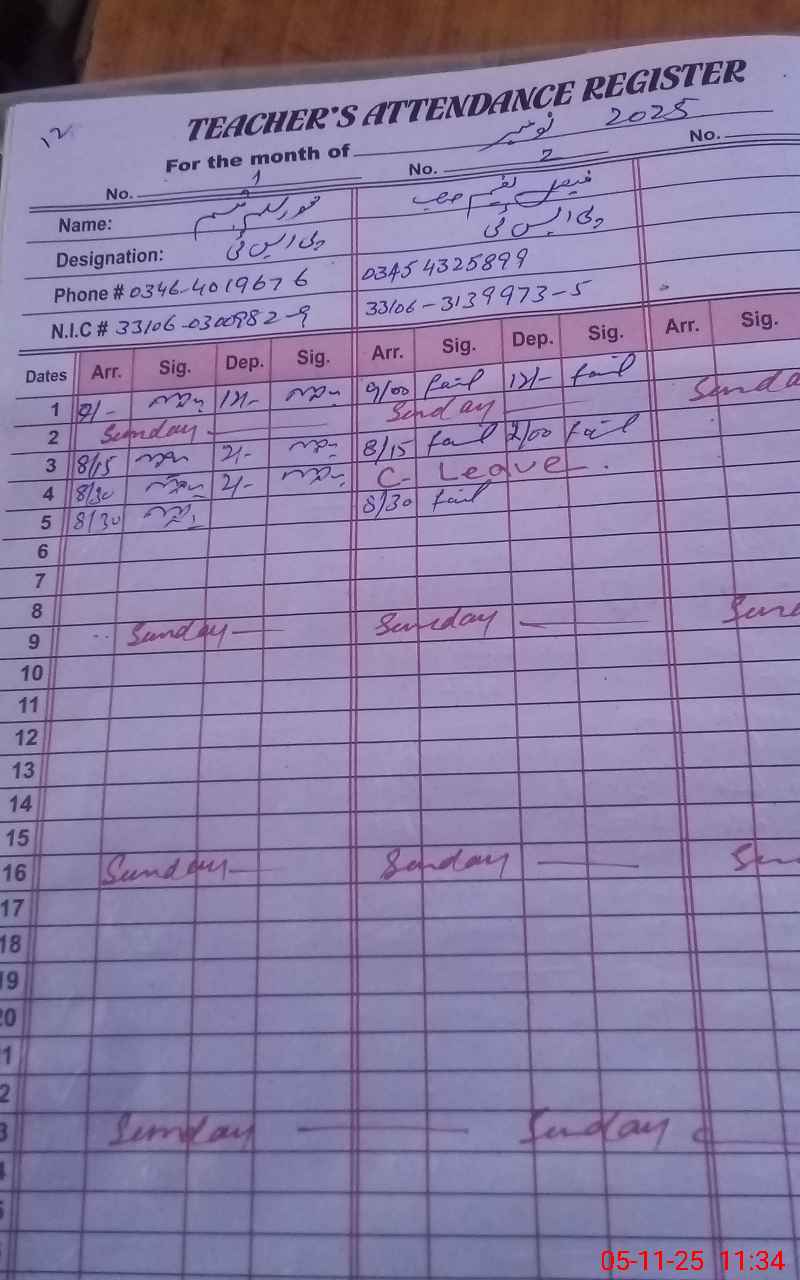 ۱۲
TEACHER'S ATTENDANCE REGISTER
For the month of نومبر 2025
No. 1 No. 2 No.
Name: فیصل نعیم
Designation: پی ایس ٹی پی ایس ٹی
Phone # 0346-4019676 03454325899
N.I.C # 33106-0300982-9 33106-3139973-5
Dates Arr. Sig. Dep. Sig. Arr. Sig. Dep. Sig. Arr. Sig.
1 9/- 12/- 9/00 12/-
2 Sunday Sunday Sunda
3 8/15 2/- 8/15 2/00
4 8/30 2/- C- Leave.
5 8/30 8/30
6
7
8
9 Sunday Sunday Sun
10
11
12
13
14
15
16 Sunday Sunday Sun
17
18
19
20
1
2
3 Sunday Sunday
05-11-25 11:34